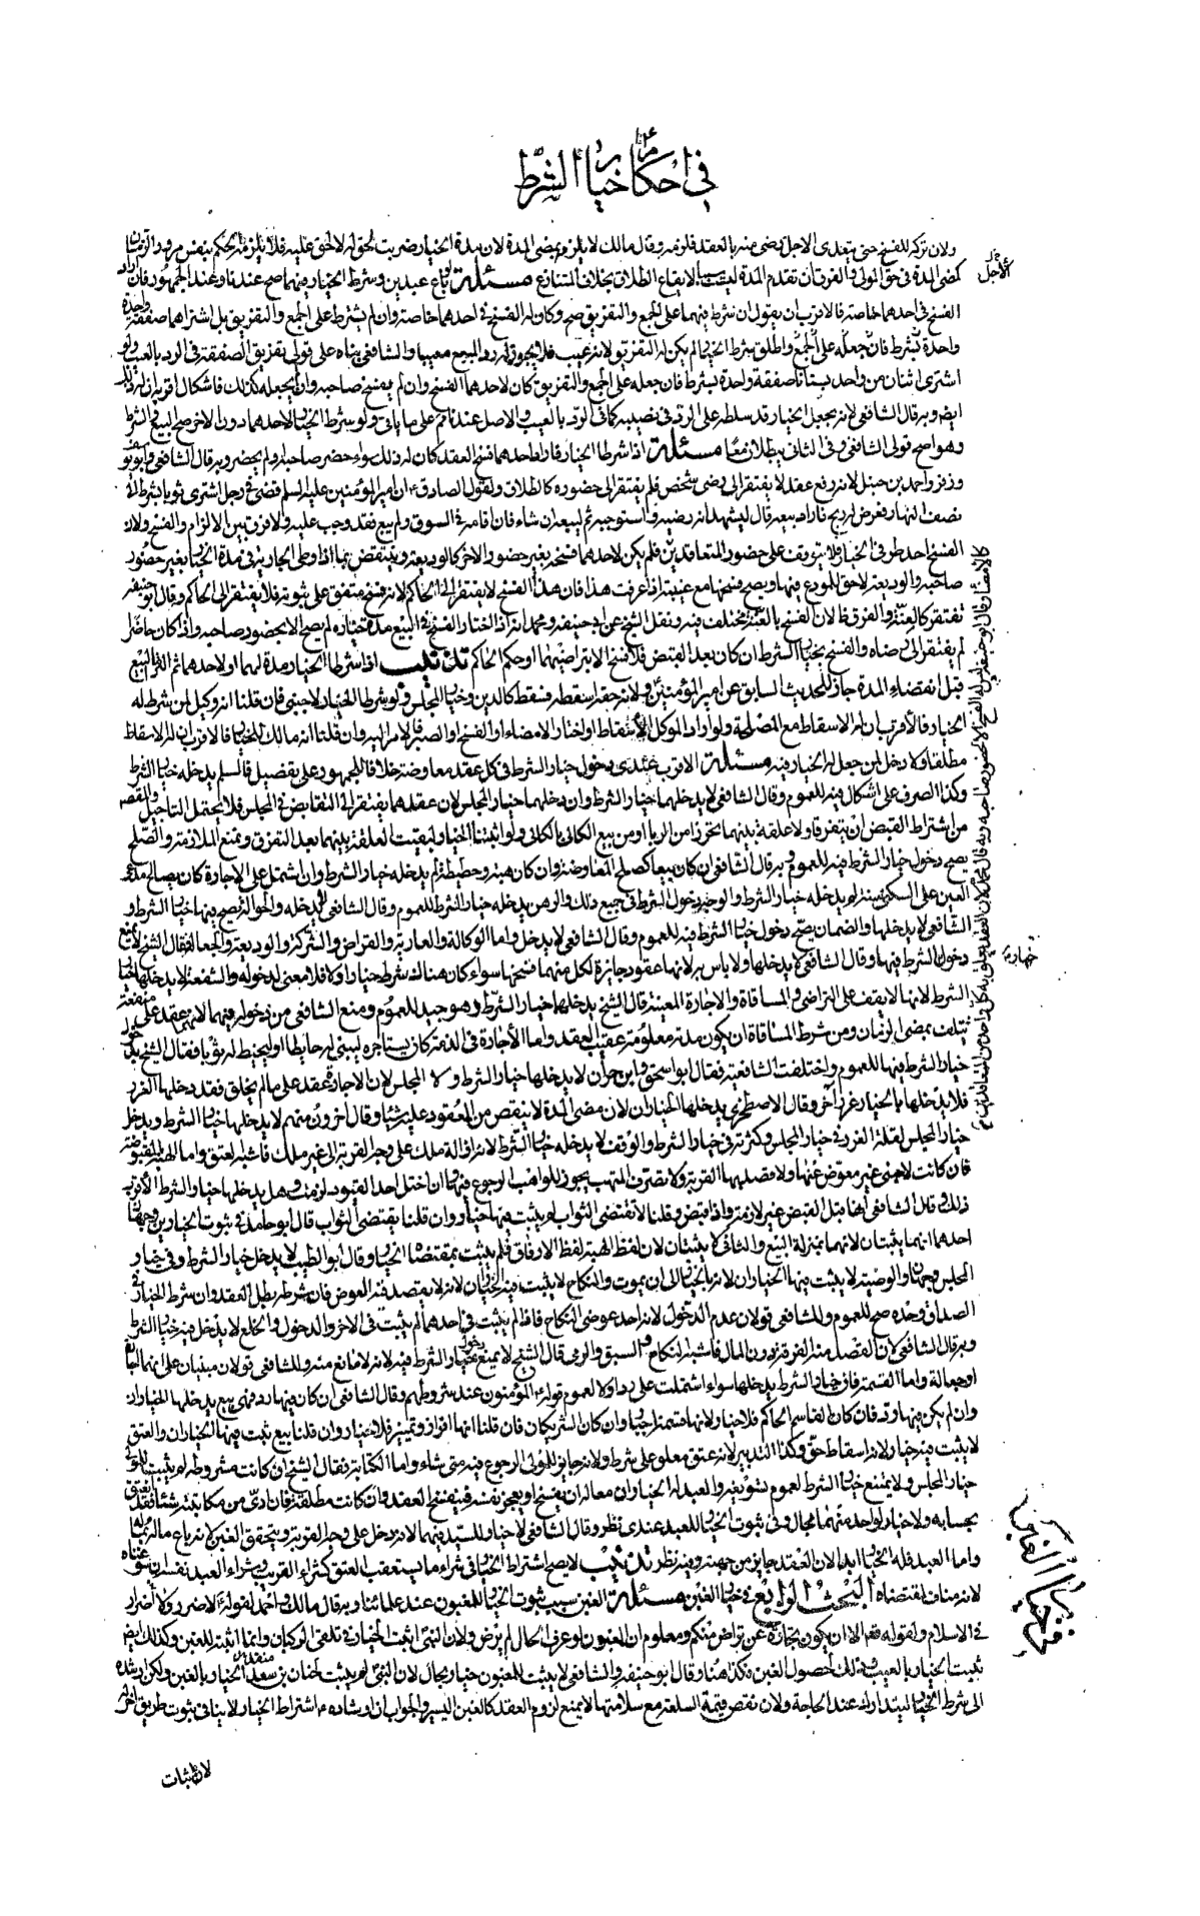 في احكام خيار الشرط
ولان تركه للفسخ حتى يتعدى الاجل رضى منه بالعقد فلزمه وقال مالك لا يلزم بمضى المدة لان مدة الخيار ضربت لحق له لا لحق عليه فلا يلزمه الحكم بنفس مرور الزمان
كمضى المدة في حق المولى والفرق ان تقدم المدة ليست سببا لايقاع الطلاق بخلاف المتنازع مسئلة لو باع عبدين وشرط الخيار فيهما صح عندنا وعند الجمهور فان اراد
الفسخ في احدهما خاصة فالاقرب ان يقول ان شرط فيهما على الجمع والتفريق صح وكان له الفسخ في احدهما خاصة وان لم يشترط على الجمع والتفريق بل اشتراهما صفقة واحدة
واحدة بشرط فان جعله على الجمع واطلق بشرط الخيار لم يكن له التفريق لانه عيب فلا يجوز له رد المبيع معيبا والشافعي بناه على قولي تفريق الصفقة في الرد بالعيب ولو
اشترى اثنان من واحد شيئا صفقة واحدة بشرط فان جعله على الجمع والتفريق كان لاحدهما الفسخ وان لم يفسخ صاحبه وان لم يجعله كذلك فاشكال اقربه ان له ذلك
ايضا وبه قال الشافعي لانه بجعل الخيار قد سلطه على الرد في نصيبه كما في الرد بالعيب والاصل عندنا ثم على ما ياتي ولو شرط الخيار لاحدهما دون الاخر صح البيع والشرط
وهو اصح قولي الشافعي وفي الثاني يبطلان معا مسئلة اذا شرطا الخيار فاراد احدهما فسخ العقد كان له ذلك سواء حضر صاحبه او لم يحضر وبه قال الشافعي وابو يوسف
وزفر واحمد بن حنبل لانه رفع عقد لا يفتقر الى رضى شخص فلم يفتقر الى حضوره كالطلاق ولقول الصادق ان امير المؤمنين عليه السلم قضى في رجل اشترى ثوبا بشرط الى
نصف النهار فعرض له ربح فاراد بيعه قال ليشهد انه رضيه واستوجبه ثم ليبعه ان شاء فان اقامه في السوق ولم يبع فقد وجب عليه ولا فرق بين الالزام والفسخ ولان
الفسخ احد طرفي الخيار فلا يتوقف على حضور المتعاقدين فلم يكن لاحدهما فسخه بغير حضور الاخر كالوديعة وينتقض بما اذا وطى الجارية في مدة الخيار بغير حضور
صاحبه والوديعة لا حق للمودع فيها ويصح فسخها مع غيبته اذا عرفت هذا فان هذا الفسخ لا يفتقر الى الحاكم لانه فسخ متفق على ثبوته فلا يفتقر الى الحاكم وقال ابو حنيفة
تفتقر كالعنة والفرق ظ لان الفسخ بالعنة مختلف فيه ونقل الشيخ عن ابي حنيفة ومحمد انه اذا اختار الفسخ في البيع مدة خياره لم يصح الا بحضور صاحبه واذا كان حاضرا
لم يفتقر الى رضاه والفسخ بخيار الشرط ان كان بعد القبض فلا فسخ الا بتراضيهما او حكم الحاكم تذنيب اذا شرطا الخيار مدة لهما او لاحدهما ثم التزما البيع
قبل انقضاء المدة جاز للحديث السابق عن امير المؤمنين ولانه حقه اسقطه فسقط كالدين وخيار المجلس ولو شرطا الخيار لاجنبي فان قلنا انه وكيل لمن شرط له
الخيار فالاقرب ان له الاسقاط مع المصلحة ولو اراد الموكل الاسقاط او اختار الامضاء او الفسخ او الصبر فالامر اليه وان قلنا انه مالك للخيار فالاقرب ان له الاسقاط
مطلقا ولا دخل لمن جعل له الخيار فيه مسئلة الاقرب عندي دخول خيار الشرط في كل عقد معاوضة خلافا للجمهور على تفصيل فالسلم يدخله خيار الشرط
وكذا الصرف على اشكال فيه للعموم وقال الشافعي لا يدخلهما خيار الشرط وان دخلهما خيار المجلس لان عقدهما يفتقر الى التقابض في المجلس فلا يحتمل التاجيل والقصد
من اشتراط القبض ان يتفرقا ولا علقة بينهما تحرزا من الربا او من بيع الكالي بالكالي ولو اثبتنا الخيار لبقيت العلقة بينهما بعد التفرق ونمنع الملازمة والصلح
يصح دخول خيار الشرط فيه للعموم وبه قال الشافعي ان كان بيعا كصلح المعاوضة وان كان هبة وحطيطة لم يدخله خيار الشرط وان اشتمل على الاجارة كان يصالح مدعى
العين على السكنى سنة لم يدخله خيار الشرط والوجه دخول الشرط في جميع ذلك والرهن يدخله خيار الشرط للعموم وقال الشافعي لا يدخله والحوالة يصح فيها خيار الشرط و
الشافعي لا يدخلها والضمان يصح دخول خيار الشرط فيه للعموم وقال الشافعي لا يدخل واما الوكالة والعارية والقراض والشركة والوديعة والجعالة فقال الشيخ لا يمنع
دخول الشرط فيها وقال الشافعي لا يدخلها ولا باس به لانها عقود جايزة لكل منهما فسخها سواء كان هناك شرط خيار او لا فلا معنى لدخوله والشفعة لا يدخلها خيار
الشرط لانها لا يقف على التراضي والمساقاة والاجارة المعينة قال الشيخ يدخلها خيار الشرط وهو جيد للعموم ومنع الشافعي من دخوله فيهما لانهما عقد على منفعة
تتلف بمضى الزمان ومن شرط المساقاة ان يكون مدته معلومة عقيب العقد واما الاجارة في الذمة كان يستاجره ليبنى له حايطا او ليخيط له ثوبا فقال الشيخ بدخول
خيار الشرط فيها للعموم واختلفت الشافعية فقال ابو اسحق وابن خيران لا يدخلها خيار الشرط ولا المجلس لان الاجارة عقد على ما لم يخلق فقد دخلها الغرر
فلا يدخلها بالخيار غرر اخر وقال الاصطخري يدخلها الخياران لان مضى المدة لا ينقص من المعقود عليه شيئا وقال اخرون منهم لا يدخلها خيار الشرط ويدخل
خيار المجلس لقلة الغرر في خيار المجلس وكثرته في خيار الشرط والوقف لا يدخله خيار الشرط لانه ازالة ملك على وجه القربة الى غير ملك فاشبه العتق واما الهبة المقبوضة
فان كانت لاجنبي غير معوض عنها ولا قصد بها القربة ولا تصرف المتهب يجوز للواهب الرجوع فيها وان اختل احد القيود لزمت وهل يدخلها خيار الشرط الاقرب
ذلك وقال الشافعي انها قبل القبض غير لازمة واذا قبض وقلنا لا تقتضى الثواب لم يثبت فيها خيار وان قلنا يقتضى الثواب قال ابو حامد في ثبوت الخيارين وجهان
احدهما انهما يثبتان لانهما بمنزلة البيع والثاني لا يثبتان لان لفظ الهبة لفظ الارفاق فلم يثبت بمقتضاه الخيار وقال ابو الطيب لا يدخل خيار الشرط وفي خيار
المجلس وجهان والوصية لا يثبت فيها الخياران لانه بالخيار الى ان يموت والنكاح لا يثبت فيه الخياران لانه لا يقصد فيه العوض فان شرطه بطل العقد وان شرط الخيار في
الصداق وحده صح للعموم وللشافعي قولان عدم الدخول لانه احد عوضي النكاح فاذا لم يثبت في احدهما لم يثبت في الاخر والدخول والخلع لا يدخل فيه خيار الشرط
وبه قال الشافعي لان القصد منه الفرقة دون المال فاشبه النكاح والسبق والرمي قال الشيخ لا يمنع دخول خيار الشرط فيه لانه لا مانع منه وللشافعي قولان مبنيان على انهما اجارة
او جعالة واما القسمة فان خيار الشرط يدخلها سواء اشتملت على رد او لا لعموم قوله المؤمنون عند شروطهم وقال الشافعي ان كان فيها رد فهي بيع يدخلها الخياران
وان لم يكن فيها رد فان كان القاسم الحاكم فلا خيار لانها قسمة اجبار وان كان الشريكان فان قلنا انها افراز وتمييز فلا خيار وان قلنا بيع ثبت فيها الخياران والعتق
لا يثبت فيه خيار لانه اسقاط حق وكذا التدبير لانه عتق معلق على شرط ولانه جايز للمولى الرجوع فيه متى شاء واما الكتابة فقال الشيخ ان كانت مشروطة لم يثبت للمولى
خيار المجلس ولا يمتنع خيار الشرط لعموم تسويغه والعبد له الخيار ان معا له ان يفسخ او يعجز نفسه فينفسخ العقد وان كانت مطلقة فان ادى من مكاتبته شيئا فقد انعتق
بحسابه ولا خيار لواحد منهما بحال وفي ثبوت الخيار للعبد عندي نظر وقال الشافعي لا خيار للسيد فيهما لانه دخل على وجه القربة ويتحقق الغبن لانه باع ماله بماله
واما العبد فله الخيار ابدا لان العقد جايز من جهته وفيه نظر تذنيب لا يصح اشتراط الخيار في شراء ما يستعقب العتق كشراء القريب وشراء العبد نفسه ان سوغناه
لانه مناف لمقتضاه البحث الرابع في خيار الغبن مسئلة الغبن سبب ثبوت الخيار للمغبون عند علمائنا وبه قال مالك واحمد لقوله لا ضرر ولا اضرار
في الاسلام ولقوله تعم الا ان يكون تجارة عن تراض منكم ومعلوم ان المغبون لو عرف الحال لم يرض ولان النبي اثبت الخيار في تلقى الركبان وانما اثبته للغبن وكذلك ايضا
ثبت الخيار بالعيب لحصول الغبن فكذا هنا وقال ابو حنيفة والشافعي لا يثبت للمغبون خيار بحال لان النبي لم يثبت لحبان بن منقذ الخيار بالغبن ولكن ارشده
الى شرط الخيار ليتدارك عند الحاجة ولان نقص قيمة السلعة مع سلامتها لا يمنع لزوم العقد كالغبن اليسير والجواب ان ارشاده الى اشتراط الخيار لا ينافي ثبوت طريق اخر له
لان اثبات
في خيار الغبن